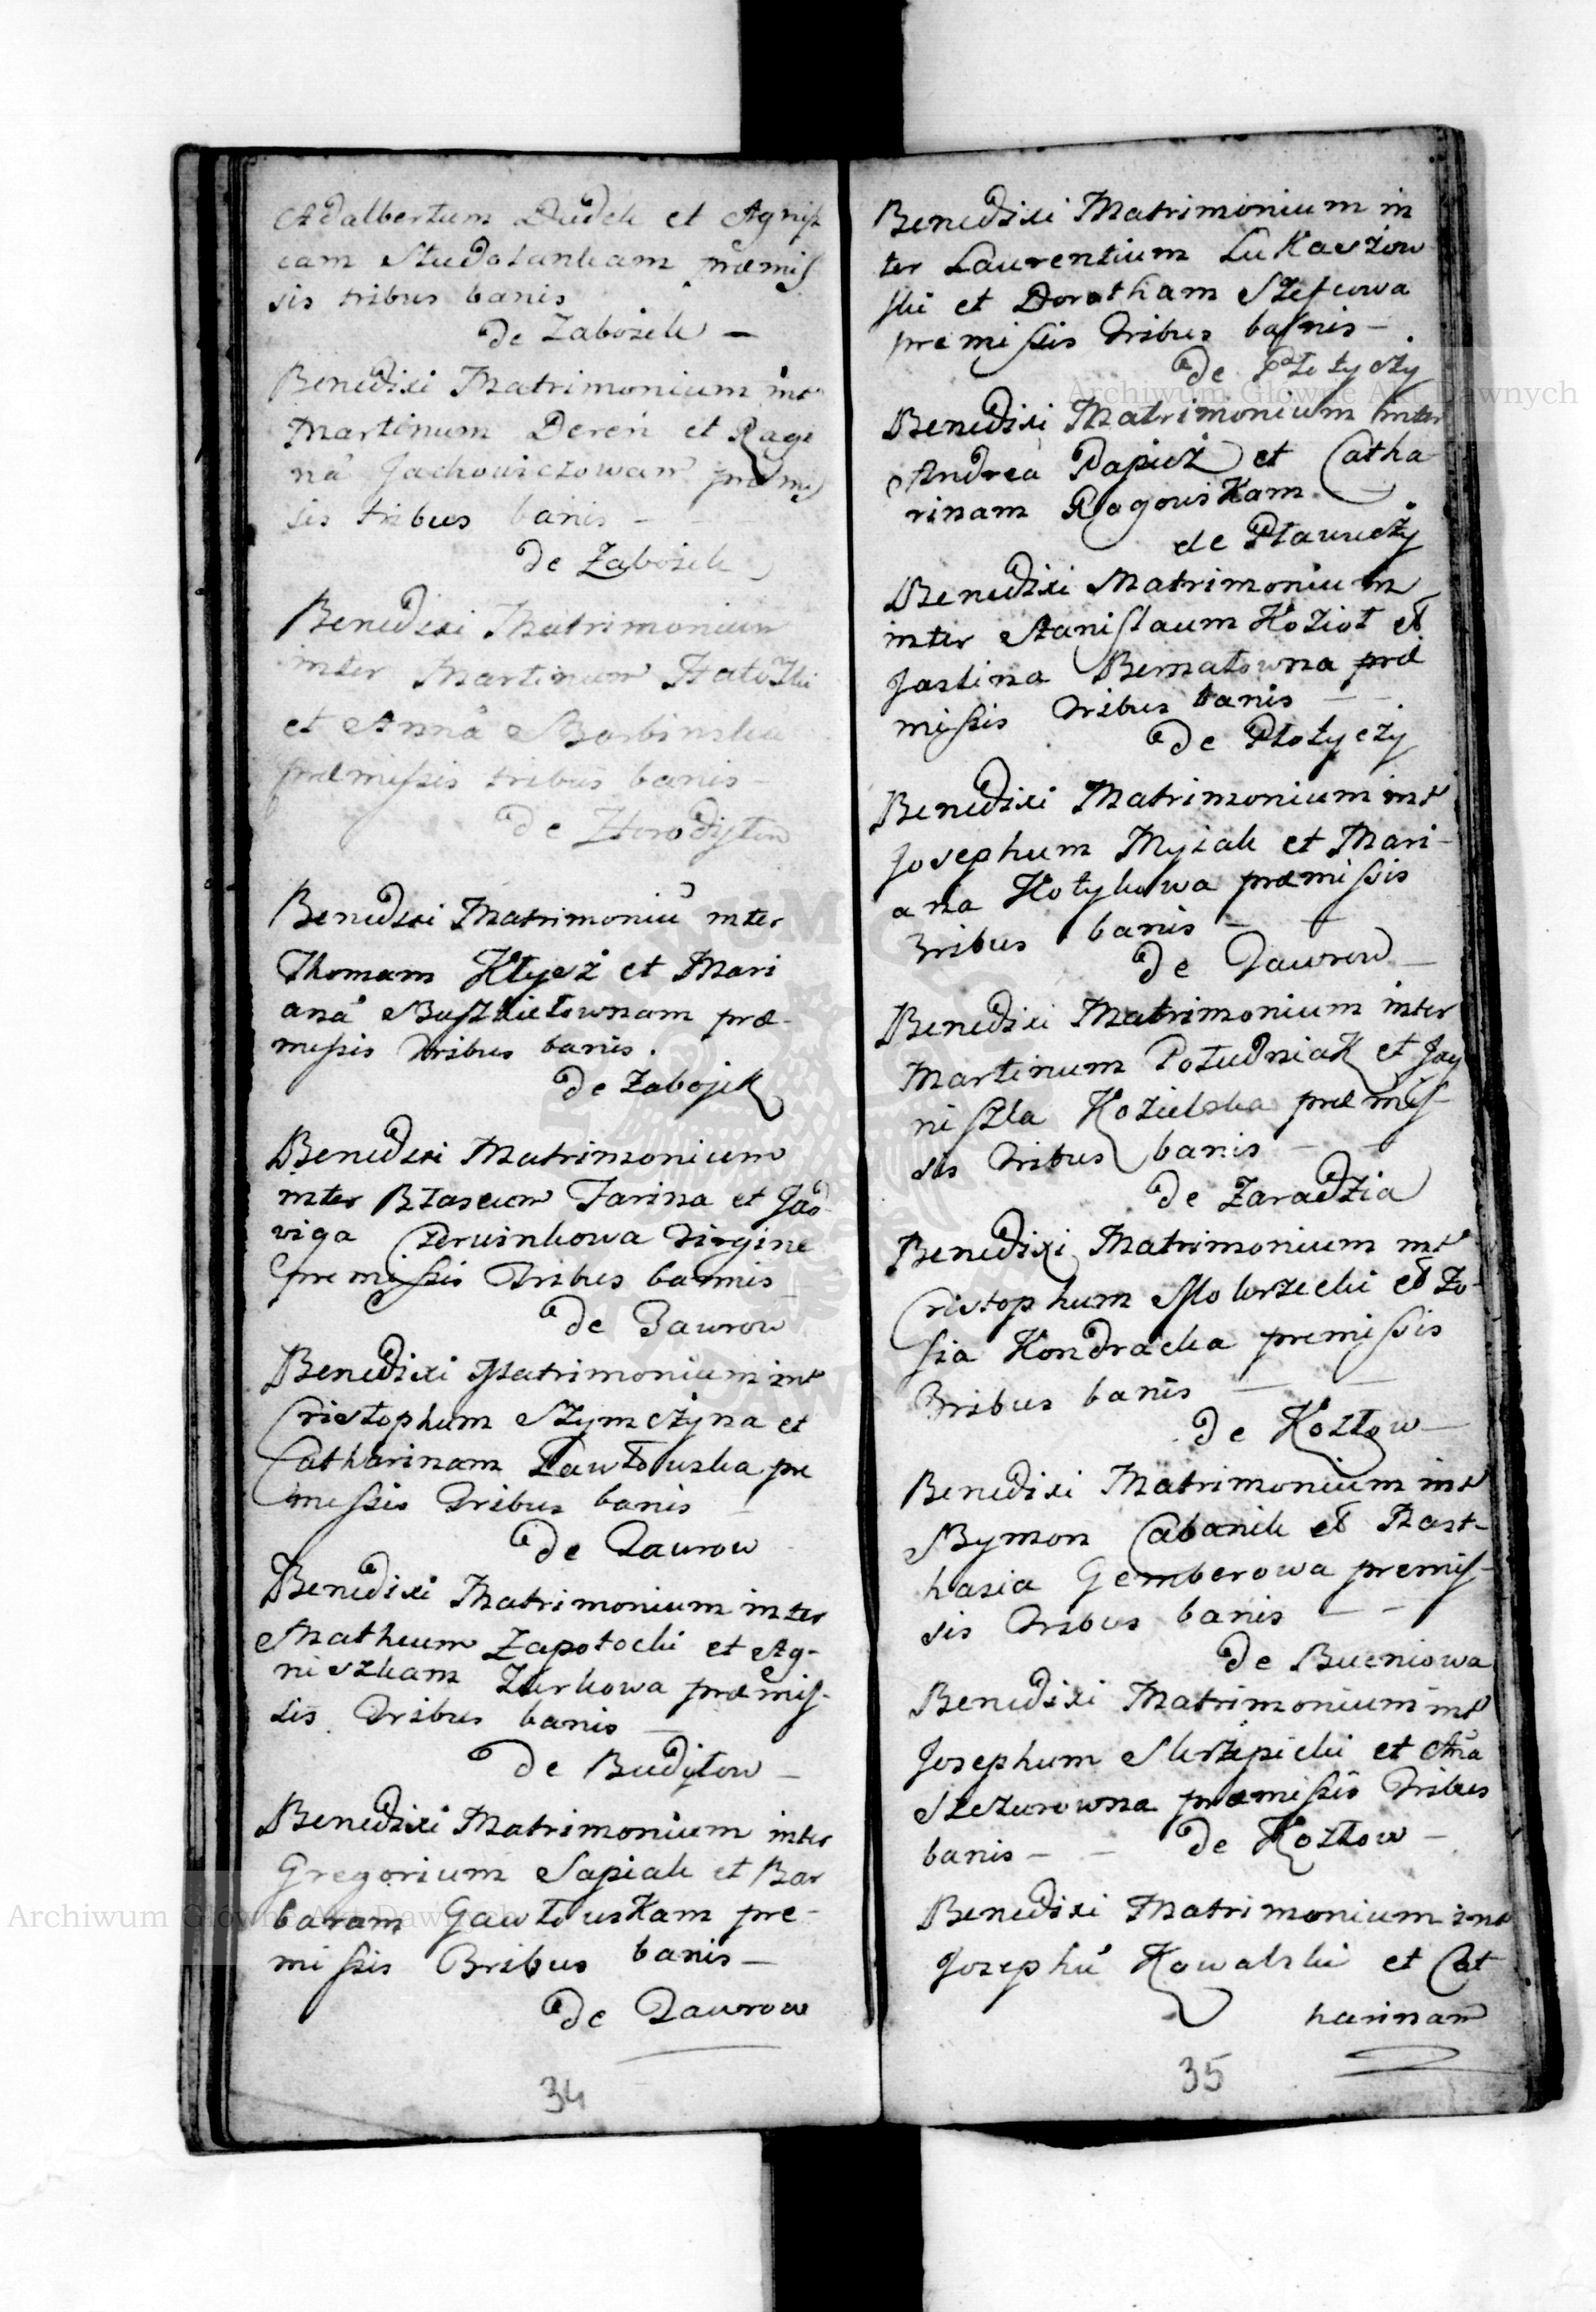 Adalbertum Dudek et Agnisz
cam Studolankam præmis
sis tribus banis
de Zabojek —
Benedixi Matrimonium int
Martinum Dereń et Ragi
nã Jachowiczowam præmis
sis tribus banis —
de Zabojek
Benedixi Matrimonium
inter Martinum
et Annã Barbinska
præmissis tribus banis —
de Horodyszcz
Benedixi Matrimoniũ inter
Thomam Kłysz et Mari
anã præ-
missis tribus banis.
de Zabojek
Benedixi Matrimonium
inter Błaseum Farina et Jad-
viga Czerwinkowa Virgine
premissis tribus bannis
de Jawrow
Benedixi Matrimonium int
Cristophum Szymczyna et
Catharinam Pawłowska pre
missis tribus banis —
de Jawrow
Benedixi Matrimonium inter
Matheum Zapotocki et Ag-
niszkam Zurkowa præmis-
sis tribus banis —
de Budyłow —
Benedixi Matrimonium inter
Gregorium Sapiak et Bar
baram Gawłowskam pre-
missis tribus banis —
de Jawrow
34
Benedixi Matrimonium in
ter Laurentium Lukaszow
ski et Doratham Szefcowa
premissis tribus banis —
de Płotyczy
Benedixi Matrimonium inter
Andrea Papież et Catha-
rinam Ragowskam —
de Pławuczy
Benedixi Matrimonium
inter Stanislaum Kozioł et
Jastina Bernatowna præ
missis tribus banis —
de Płotyczy
Benedixi Matrimonium int
Josephum Mysiak et Mari-
ana Kotykowa præmissis
tribus banis — —
de Jawrow —
Benedixi Matrimonium inter
Martinum Południak et Jag
niszka Kozielska præmis-
sis tribus banis — —
de Zaradzia
Benedixi Matrimonium int
Cristophum Mokrzecki et Zo-
sia Kondracka premissis
tribus banis — —
de Kozłow —
Benedixi Matrimonium int
Symon Cabanik et Nast-
hasia Gemberowa premis-
sis tribus banis — —
de Bueniowa
Benedixi Matrimonium int
Josephum Skrzypicki et Aña
Szczurowna præmissis tribus
banis — — de Kozłow —
Benedixi Matrimonium int
Josephũ Kowalski et Cat
harinam
35
Archiwum Główne Akt Dawnych
Archiwum Główne Akt Dawnych